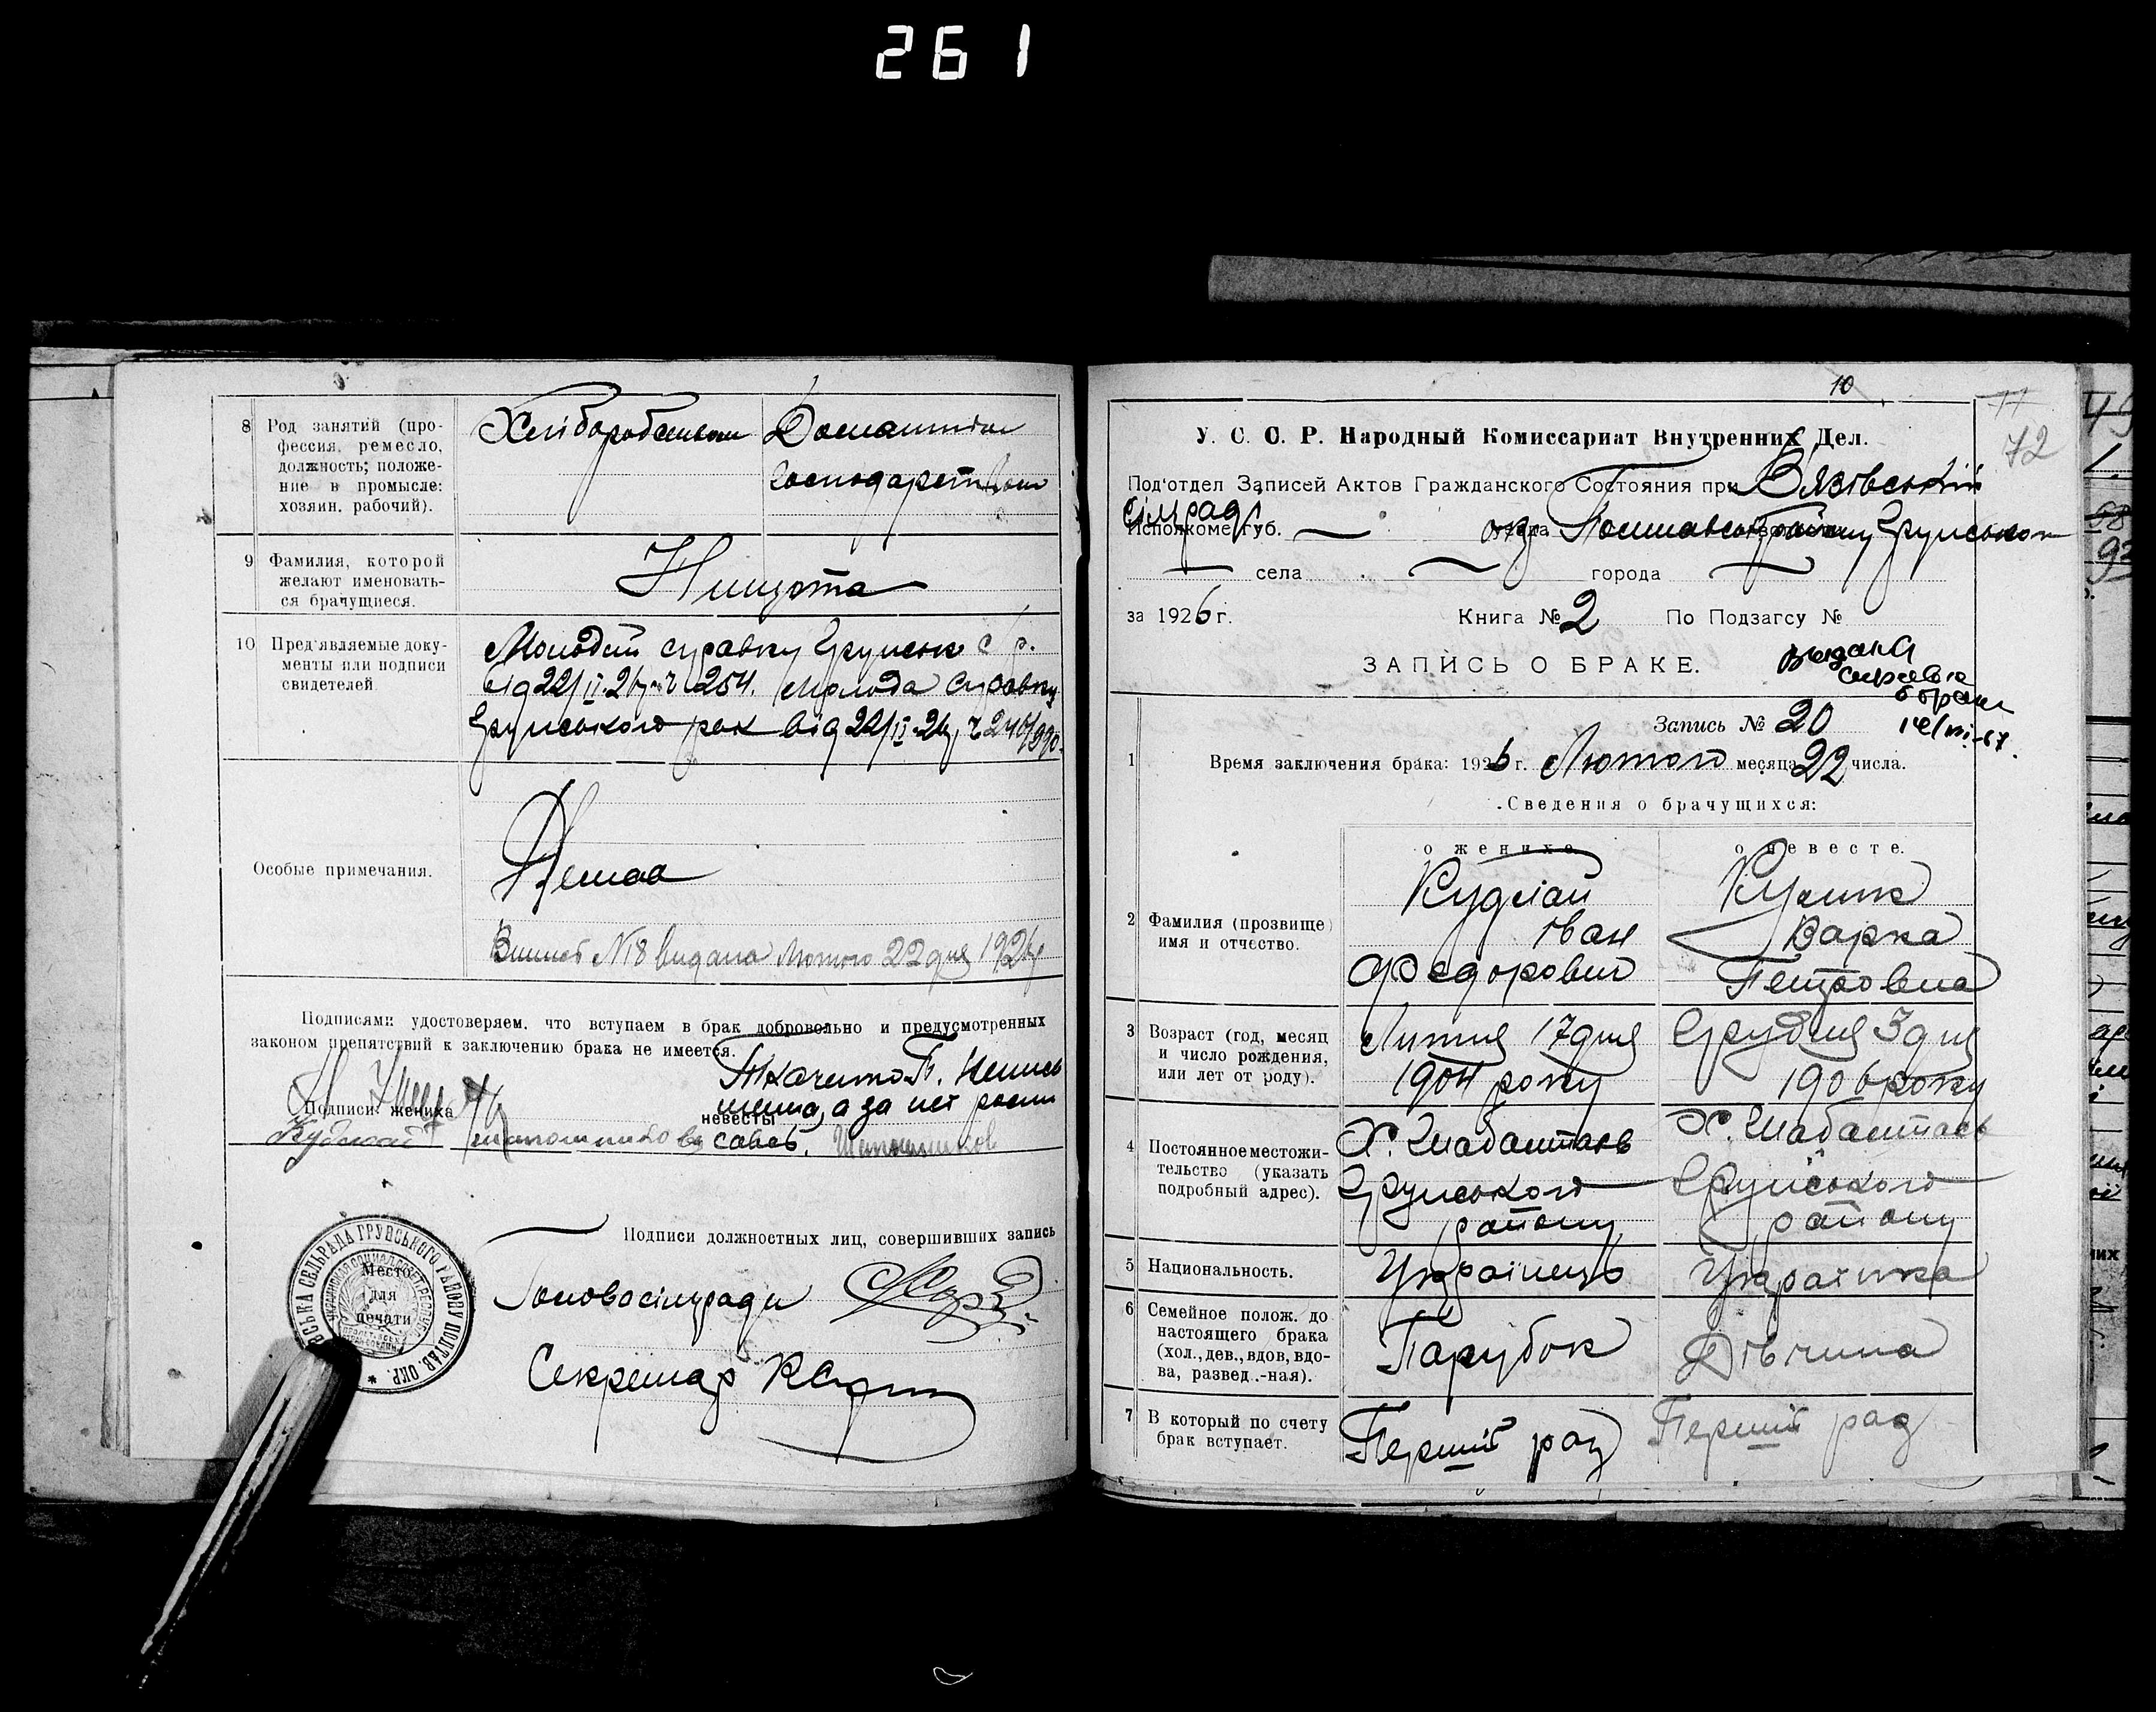 261
8 Род занятий (про-
фессия, ремесло,
должность; положе-
ние в промысле:
хозяин, рабочий).
Хліборобством
Домашнім
господарством
9 Фамилия, которой
желают именовать-
ся брачущиеся.
Нищота
10 Пред'являемые доку-
менты или подписи
свидетелей
Молодий справку Грунськ с р.
від 22/II-26 р. ч 254. Молода справку
Грунського рвк від 22/II-26 р. ч 240/990.
Особые примечания.
Нема
Випись N18 видана Лютого 22 дня 1926 р
Подписями удостоверяем, что вступаем в брак добровольно и предусмотренных
законом препятствий к заключению брака не имеется.
Ткаченко П. Непись
менна, а за неї роспи
Подписи жениха
невесты
сався.
Кудлай
Подписи должностных лиц, совершивших запись
Место
для
печати
ВСЬКА СЕЛЬРАДА ГРУНСЬКОГО РАЙОНУ ПОЛТАВ. ОКР. *
Голова сільради
Секретар
10
11
72
У. С. С. Р. Народный Комиссариат Внутренних Дел.
Под'отдел Записей Актов Гражданского Состояния при Вязівській
сільраді
Исполкоме губ. — окр. Полтавськ. району Грунського
села города
за 1926 г. Книга № 2 По Подзагсу №
ЗАПИСЬ О БРАКЕ.
Выдана
справка
о браке
Запись № 20
1 Время заключения брака: 1926 г. Лютого месяца 22 числа.
Сведения о брачущихся:
о женихе
о невесте.
2 Фамилия (прозвище)
имя и отчество.
Кудлай
Іван
Федорович
Кулик
Варка
Петровна
3 Возраст (год, месяц
и число рождения,
или лет от роду).
Липня 17 дня
1904 року
Грудня 3 дня
1906 року
4 Постоянное местожи-
тельство (указать
подробный адрес).
Х. Шабалтаєв
Грунського
району
Х. Шабалтаєв
Грунського
району
5 Национальность.
Українець
Українка
6 Семейное полож. до
настоящего брака
(хол., дев., вдов, вдо-
ва, развед.-ная).
Парубок
Дівчина
7 В который по счету
брак вступает.
Перший раз
Перший раз